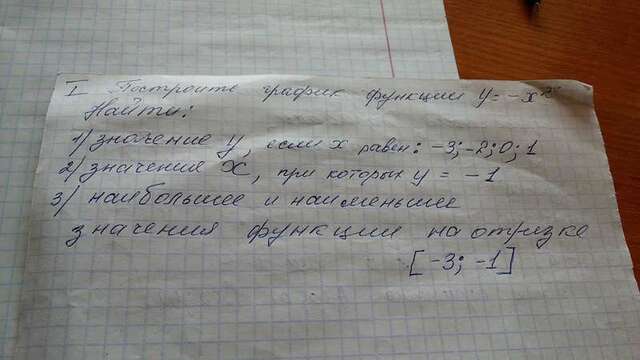 I Построить график функции y = -x²
Найти:
1) значение y, если x равен: -3; -2; 0; 1
2) значения x, при которых y = -1
3) наибольшее и наименьшее
значения функции на отрезке
[-3; -1]